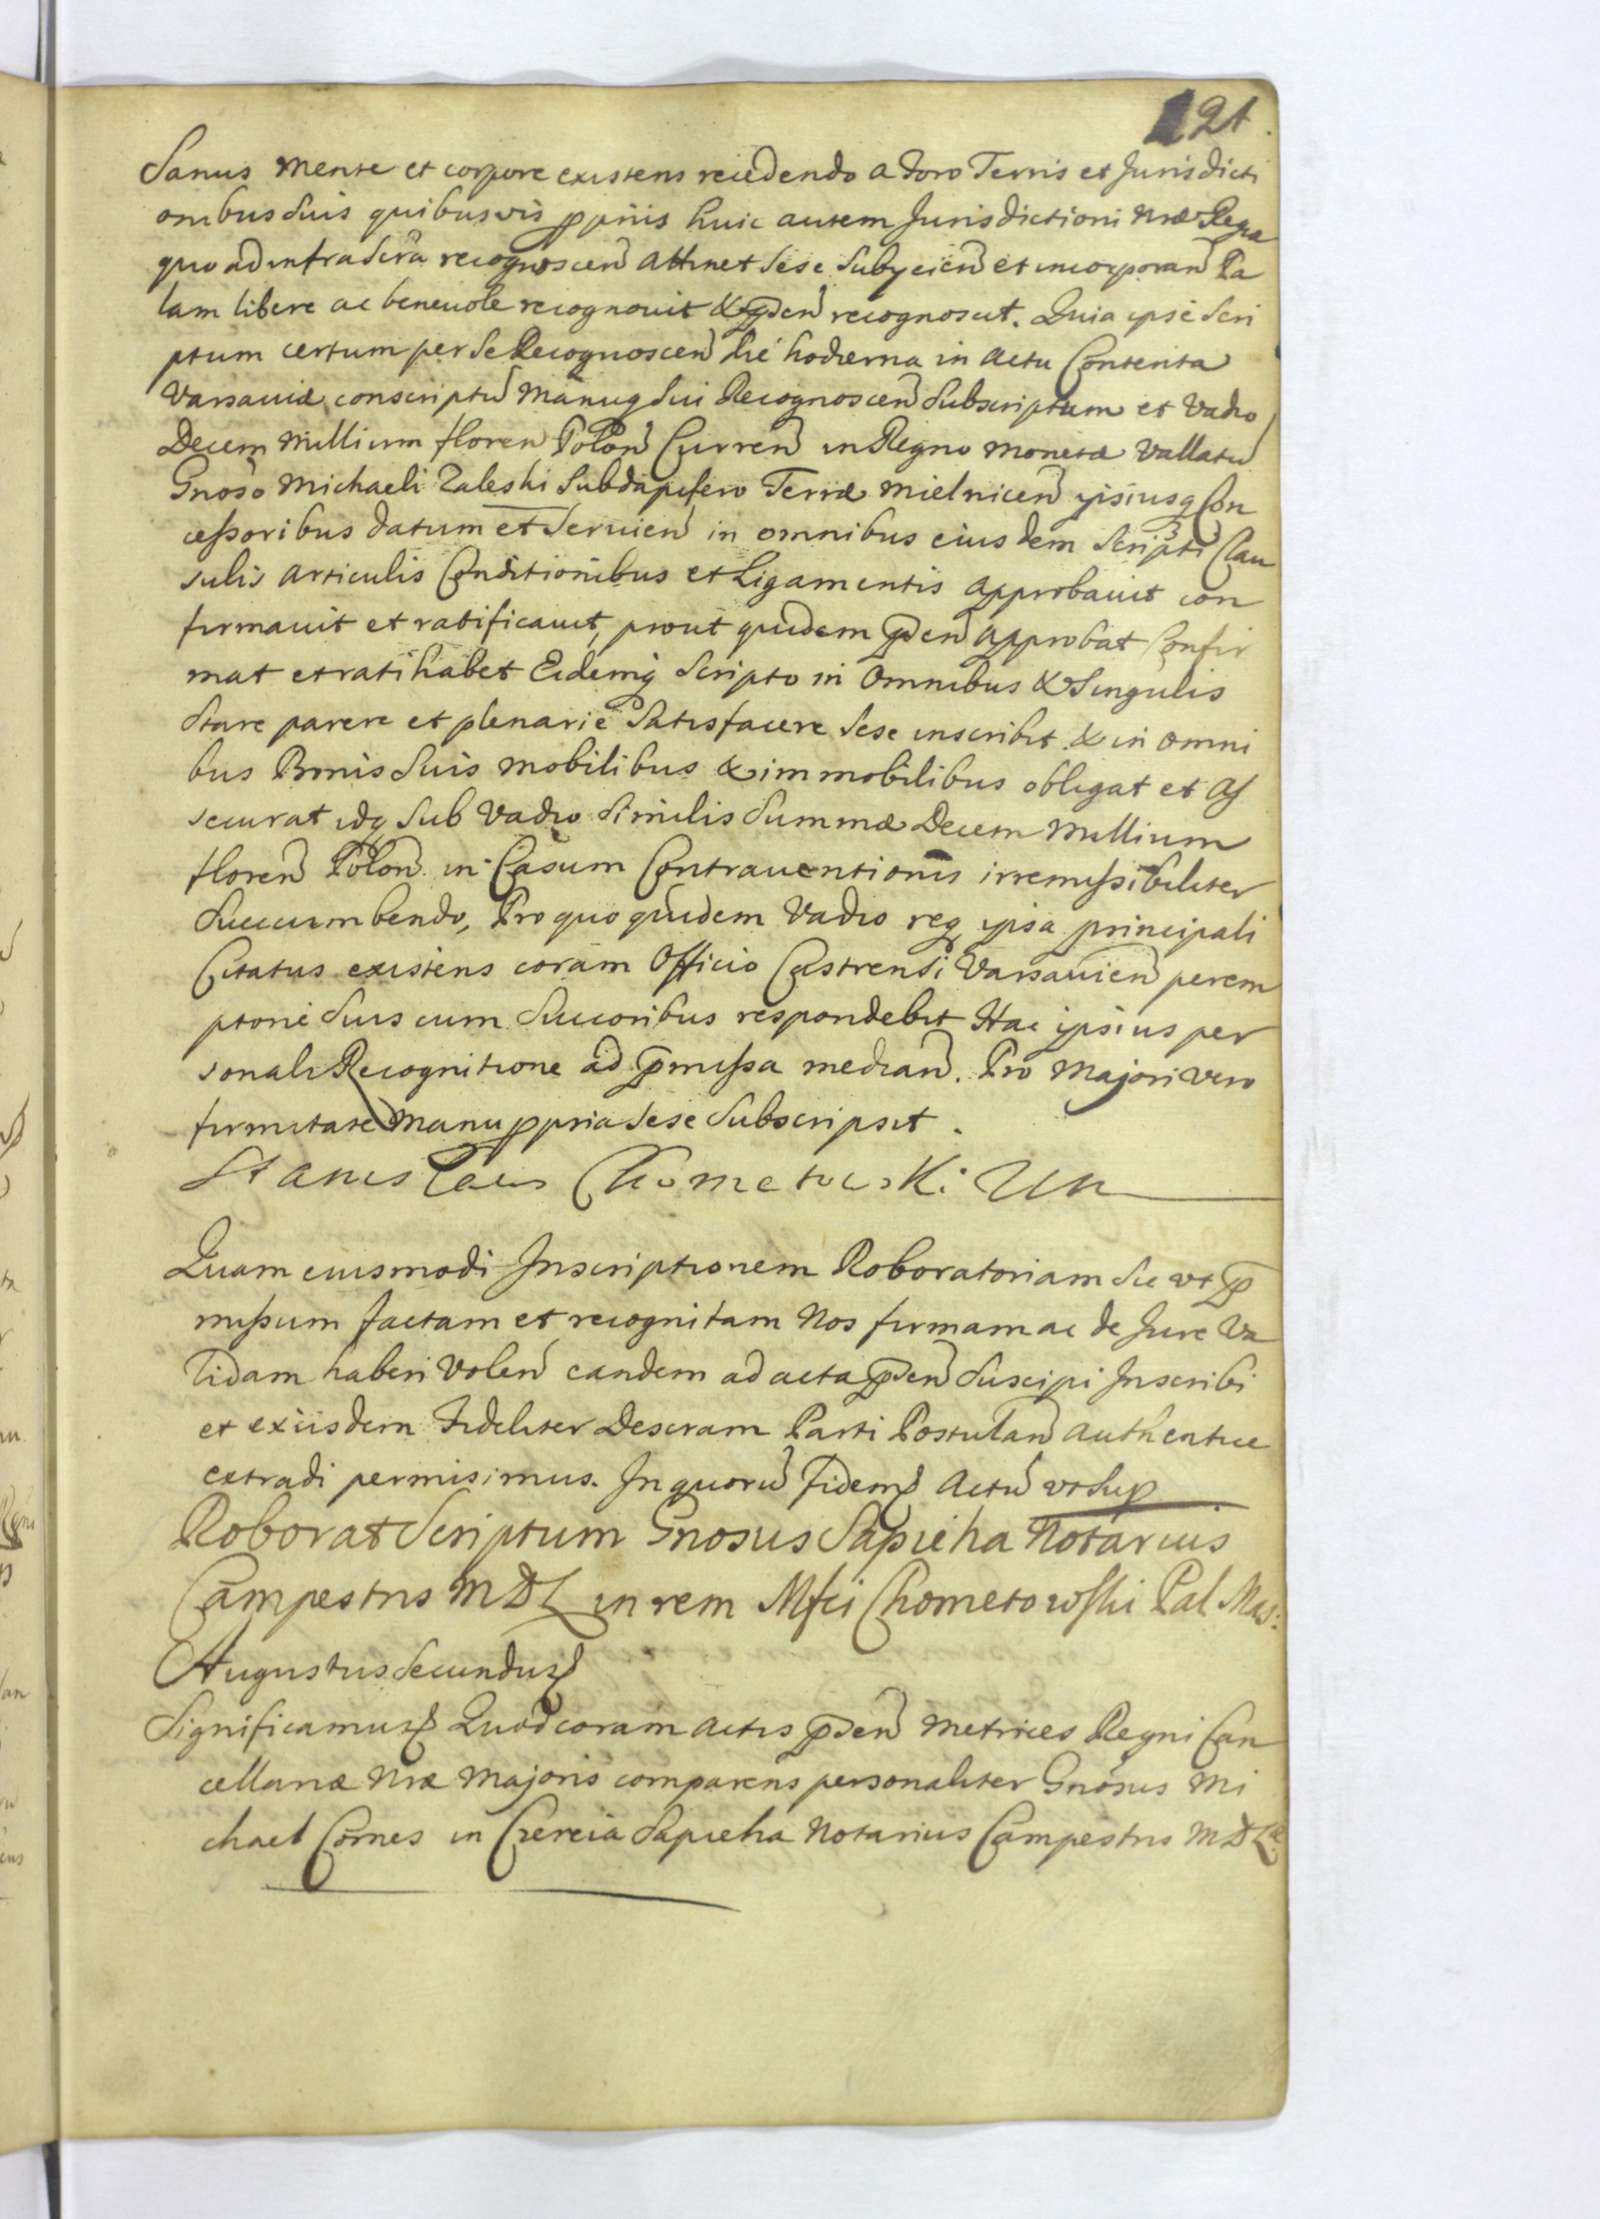 121.
Sanus mente et corpore existens recedendo a Foro Terris et Jurisdicti
onibus suis quibusvis ppriis huic autem Jurisdictioni Nræ Regia
quo ad infrascra recognoscen attinet sese subycien et incorporan Pa
lam libere ac beneuole recognouit & pden recognoscit. Quia ipse Scri
ptum certum per se Recognoscen die hodierna in actu Contenta
Varsauiæ conscriptu Manuq sui Recognoscen Subscriptum et Vadio
Decem Millium floren Polon Curren in Regno monetæ vallatu
Gnoso Michaeli Zaleski Subdapifero Terræ Mielnicen ipsiusq Con
cessoribus datum et Seruien in omnibus eiusdem Scripti Clau
sulis articulis Conditionibus et Ligamentis approbauit con
firmauit et ratificauit, prout quidem pden approbat Confir
mat et ratihabet Eidemq Scripto in Omnibus & Singulis
Stare parere et plenarie Satisfacere sese inscribit & in omni
bus Bonis Suis mobilibus & immobilibus obligat et as
securat idq Sub Vadio Similis Summæ Decem Millium
floren Polon in Casum Contrauentionis irremissibiliter
Succumbendo, Pro quo quidem Vadio req ipsa principali
Citatus existens coram Officio Castrensi Varsauien perem
ptorie Suis cum Succoribus respondebit Hac ipsius per
sonali Recognitione ad pmissa median. Pro Majori vero
firmitate Manu ppria sese Subscripsit.
Stanislaus Chometowski
Quam eiusmodi Inscriptionem Roboratoriam sic vt p
missum factam et recognitam Nos firmam ac de Jure Va
lidam haberi Volen eandem ad acta pden Suscipi Inscribi
et exiisdem Fideliter Descram Parti Postulan authentice
extradi permisimus. In quoru Fidem Actu vt Sup
Roborat Scriptum Gnosus Sapieha Notarius
Campestris MDL in rem Mfci Chometowski Pal Mas:
Augustus Secundus
Significamus Quod coram actis pden Metrices Regni Can
cellariæ Nræ Majoris comparens personaliter Gnosus Mi
chael Comes in Czereia Sapieha Notarius Campestris MDLæ